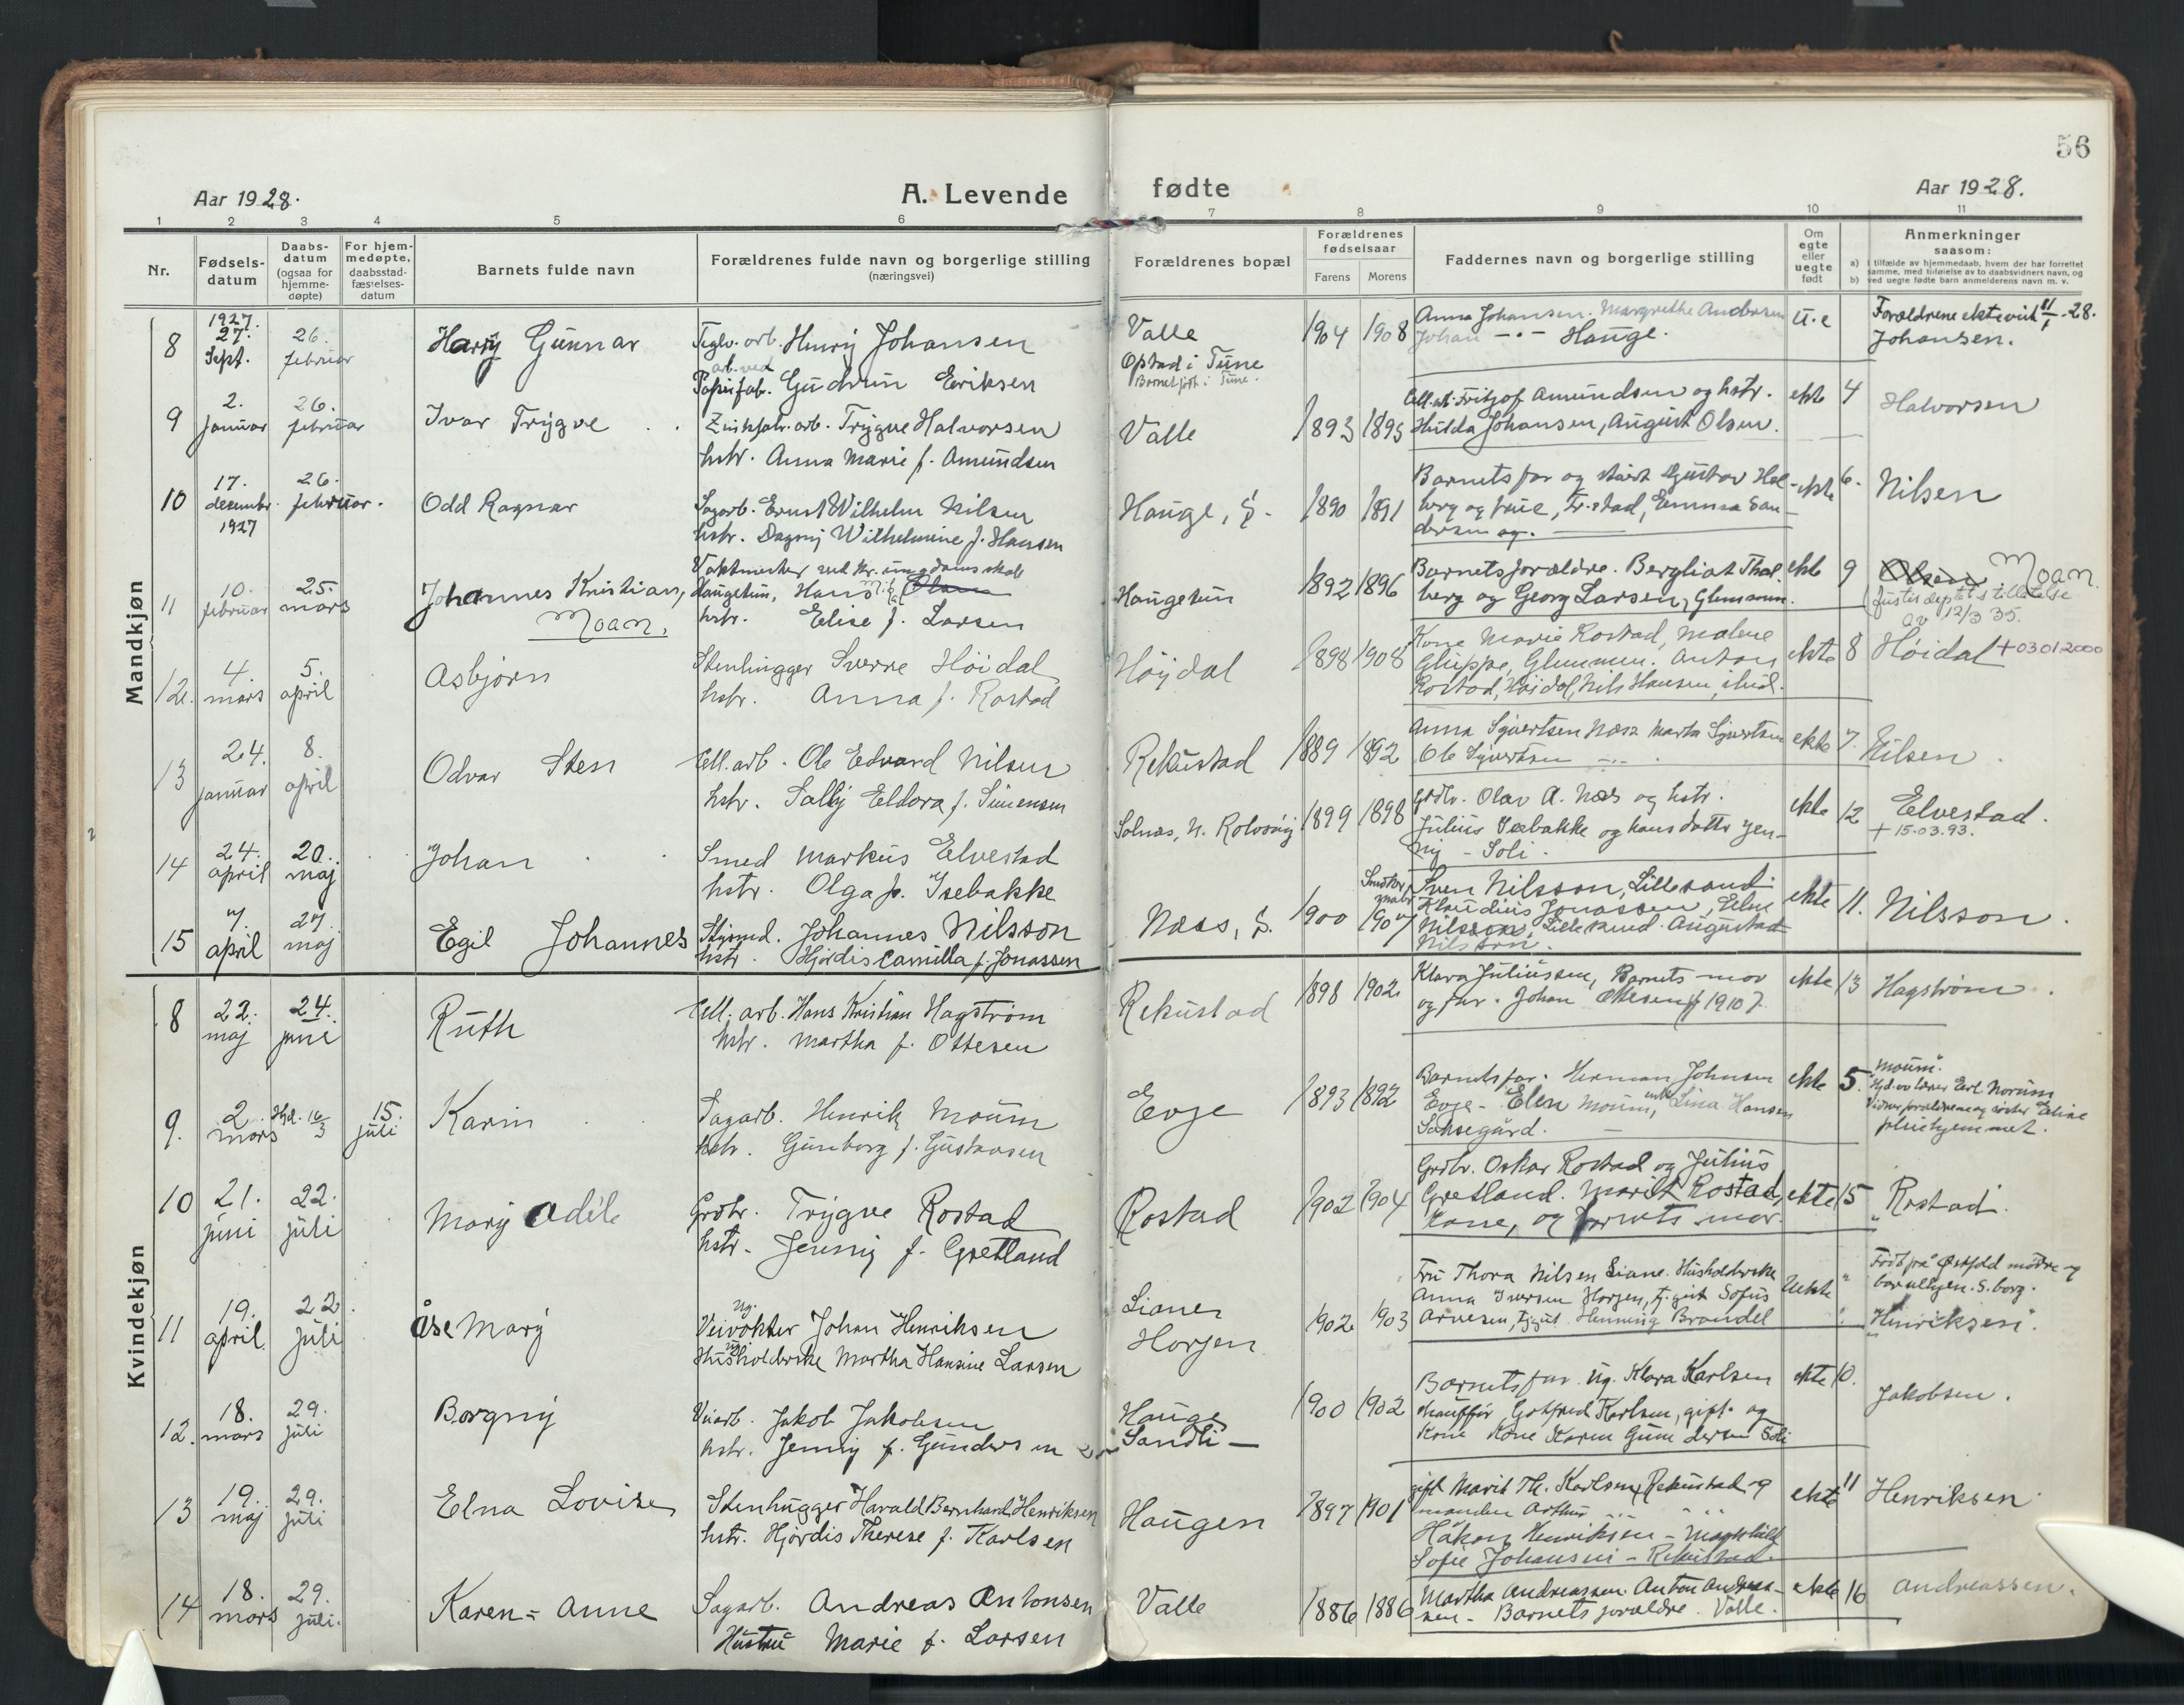 56
Aar 1928.
A. Levende fødte
Aar 1928.
1 2 3 4 5 6 7 8 9 10 11
Nr.
Fødsels-
datum
Daabs-
datum
(ogsaa for
hjemme-
døpte)
For hjem-
medøpte,
daabsstad-
fæstelses-
datum
Barnets fulde navn
Forældrenes fulde navn og borgerlige stilling
(næringsvei)
Forældrenes bopæl
Forældrenes
fødselsaar
Farens Morens
Faddernes navn og borgerlige stilling
Om
egte
eller
uegte
født
Anmerkninger
saasom:
a) I tilfælde av hjemmedaab, hvem der har forrettet
samme, med tilføielse av to daabsvidners navn, og
b) ved uegte fødte barn anmelderens navn m. v.
Mandkjøn
8
1927.
27.
Sept.
26.
februar
Harry Gunnar
Teglv. arb. Henry Johansen
arb. ved
Papirfab. Gudrun Eriksen
Valle
Opstad i Tune
Barnet født i Tune.
1904 1908
Anna Johansen. Margrethe Andersen
Johan — " — Hauge.
U. e
Forældrene ektevid 11/1 - 28.
Johansen.
9
2.
januar
26.
februar
Ivar Trygve
Zinkfabr. arb. Trygve Halvorsen
hstr. Anna Marie f. Amundsen
Valle
1893 1895
Cell. arb. Fritjof Amundsen og hstr.
Hulda Johansen, August Olsen.
ekte 4
Halvorsen
10
17.
desembr.
1927
26.
februar.
Odd Ragnar
Sagarb. Ernst Wilhelm Nilsen
hstr. Dagny Wilhelmine f. Hansen
Hauge,
1890 1891
Barnets far og Gustav Hol-
berg og frue, Fr.stad, Emma Gun-
dersen og.
ekte 6.
Nilsen
11
10.
februar
25.
mars
Johannes Kristian,
Moan.
Vaktmester ved kr. ungdomsskole
Haugetun, Hans Olsen
hstr. Elise f. Larsen
Haugetun
1892 1896
Barnets forældre. Bergliot Thal-
berg og Georg Larsen, Glemmen.
ekte 9
Olsen Moan.
(Justisdeptets tillatelse
av 12/3 35.
12.
4.
mars
5.
april
Asbjørn
Stenhugger Sverre Höidal
hstr. Anna f. Rostad
Höjdal
1898 1908
Kone Marie Rostad, Malene
Gluppe, Glemmen. Anton
Rostad, Höidal, Nils Hansen, ibid.
ekte 8
Höidal + 03012000
13
24.
januar
8.
april
Odvar Sten
Cell. arb. Ole Edvard Nilsen
hstr. Sally Eldora f. Simensen
Rekustad
1889 1892
Anna Syvertsen Næss Marta Syvertsen
Ole Syvertsen — " —
ekte 7.
Nilsen
14
24.
april
20.
maj
Johan
Smed Markus Elvestad
hstr. Olga f. Isebakke
Solnæs, N. Rolvsøy
1899 1898
Grdbr. Olav A. Næs og hstr.
Julius Isebakke og hans datter Jen-
ny - Soli.
ekte 12
Elvestad.
+ 15.03.93.
15
7.
april
27.
maj
Egil Johannes
Styrmd. Johannes Nilsson
hstr. Hjördis Camilla f. Jonassen
Næss,
1900 1907
Sven Nilsson, Lillesand
Klaudius Jonassen, Eline
Nilsson, Lillesand. Augusta
Nilsson.
ekte 11.
Nilsson.
Kvindekjøn
8
22.
maj
24.
juni
Ruth
Cell. arb. Hans Kristian Hagström
hstr. Martha f. Ottesen
Rekustad
1898 1902
Klara Juliussen, Barnets mor
og far. Johan Ottesen f 1910).
ekte 13
Hagström.
9.
2.
mars
Hjd. 16/3
15.
juli
Karin
Sagarb. Henrik Moum
hstr. Gunborg f. Gustavsen
Evje
1893 1892
Barnets far. Herman Johnsen
Evje - Elen Moum, enk. Lina Hansen
Saksegård.
ekte 5.
"Moum".
Hjd. av lærer Earl. Norum
Vidner forældrene og söster Eline
pleiehjemmet.
10
21.
juni
22.
juli
Mary Adele
Grdbr. Trygve Rostad
hstr. Jenny f. Gretland
Rostad
1902 1904
Grdbr. Oskar Rostad og Julius
Gretland. Marit Rostad,
kone, og barnets mor.
ekte 15
"Rostad".
11
19.
april
22.
juli
Åse Mary
Ug.
Veivokter Johan Henriksen
Ug.
Husholderske Martha Hansine Larsen
Liane
Horgen
1902 1903
Fru Thora Nilsen Liane. Husholderske
Anna Iversen Horgen, tj.gut Sofus
Arnesen, tj.gut Henning Brandel
Uekte
Född på Östfold mödre og
barnehjem. S.borg.
"Henriksen".
12.
18.
mars
29.
juli
Borgny
Veiarb. Jakob Jakobsen
hstr. Jenny f. Gundersen
Hauge
Sandli —
1900 1902
Barnets far. Ug. Klara Karlsen
chauffør Gotfred Karlsen, gift og
kone Kone Karen Gundersen Soli
ekte 10.
Jakobsen.
13
19.
maj
29.
juli
Elna Lovise
Stenhugger Harald Bernhard Henriksen
hstr. Hjördis Therese f. Karlsen
Haugen
1897 1901
gift Marit Th. Karlsen, Rekustad og
manden Arthur — " —
Håkon Henriksen - Magnhild
Sofie Johansen - Rekustad.
ekte 11
Henriksen
14
18.
mars
29.
juli.
Karen = Anne
Sagarb. Andreas Antonsen
Hustru Marie f. Larsen
Valle
1886 1886
Martha Andreassen. Anton Andreas-
sen - Barnets forældre. Valle.
ekte 16
Andreassen.